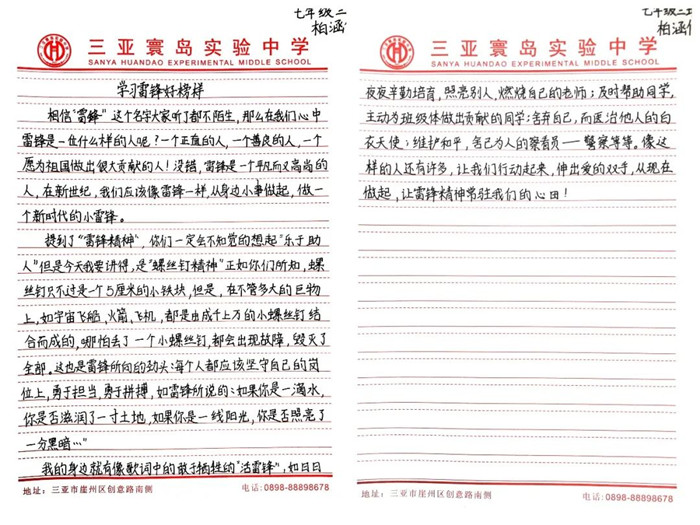 七年级二
柏涵
三亚寰岛实验中学
SANYA HUANDAO EXPERIMENTAL MIDDLE SCHOOL
学习雷锋好榜样
相信“雷锋”这个名字大家听了都不陌生,那么在我们心中
雷锋是一位什么样的人呢?一个正直的人,一个善良的人,一个
愿为祖国做出很大贡献的人!没错,雷锋是一个平凡而又高尚的
人,在新世纪,我们应该像雷锋一样,从身边小事做起,做一
个新时代的小雷锋。
提到了“雷锋精神”,你们一定会不知觉的想起“乐于助
人”但是今天我要讲得,是“螺丝钉精神”正如你们所知,螺
丝钉只不过是个5厘米的小铁块,但是,在不管多大的巨物
上,如宇宙飞船、火箭、飞机,都是由成千上万的小螺丝钉结
合而成的,哪怕丢了一个小螺丝钉,都会出现故障,毁灭了
全部。这也是雷锋所向的劲头:每个人都应该坚守自己的岗
位上,勇于担当,勇于拼搏,如雷锋所说的:如果你是一滴水,
你是否滋润了一寸土地,如果你是一线阳光,你是否照亮了
一分黑暗…”
我的身边就有像歌词中的敢于牺牲的“活雷锋”,如日日
地址:三亚市崖州区创意路南侧
电话:0898-88898678
七年级二
柏涵
三亚寰岛实验中学
SANYA HUANDAO EXPERIMENTAL MIDDLE SCHOOL
夜夜辛勤培育,照亮别人,燃烧自己的老师;及时帮助同学,
主动为班级体做出贡献的同学;舍弃自己,而医治他人的白
衣天使;维护和平,舍己为人的察看员——警察等等。像这
样的人还有许多,让我们行动起来,伸出爱的双手,从现在
做起,让雷锋精神常驻我们的心田!
地址:三亚市崖州区创意路南侧
电话:0898-88898678